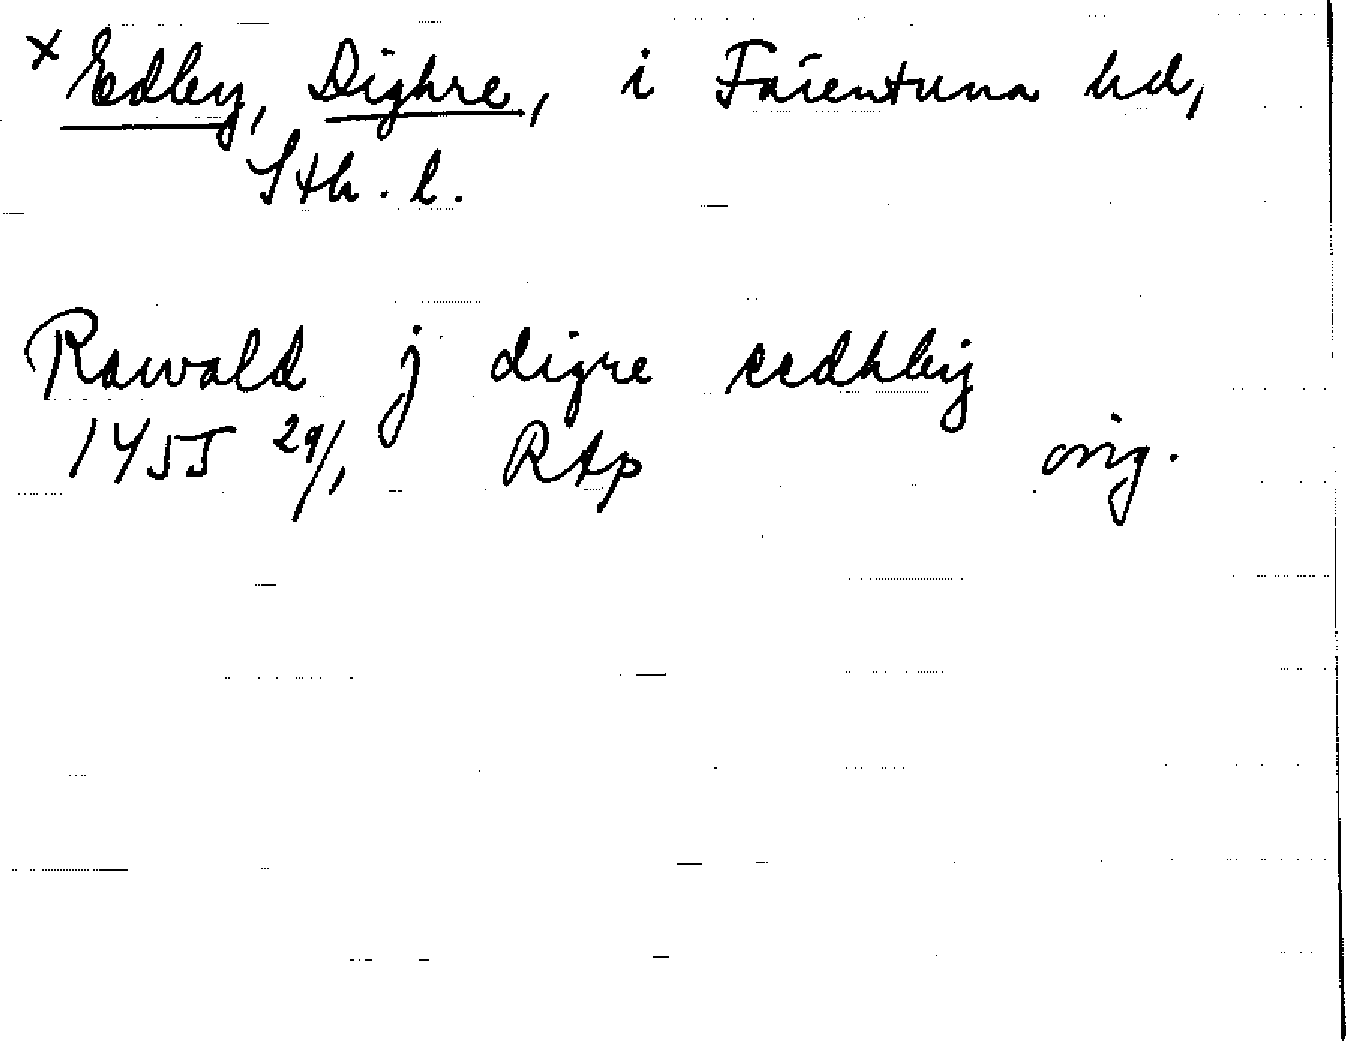 × Edby, Dighre, i Färentuna hd,
Sth. l.
Rawald j digre eedhby
1455 29/1 RAp orig.